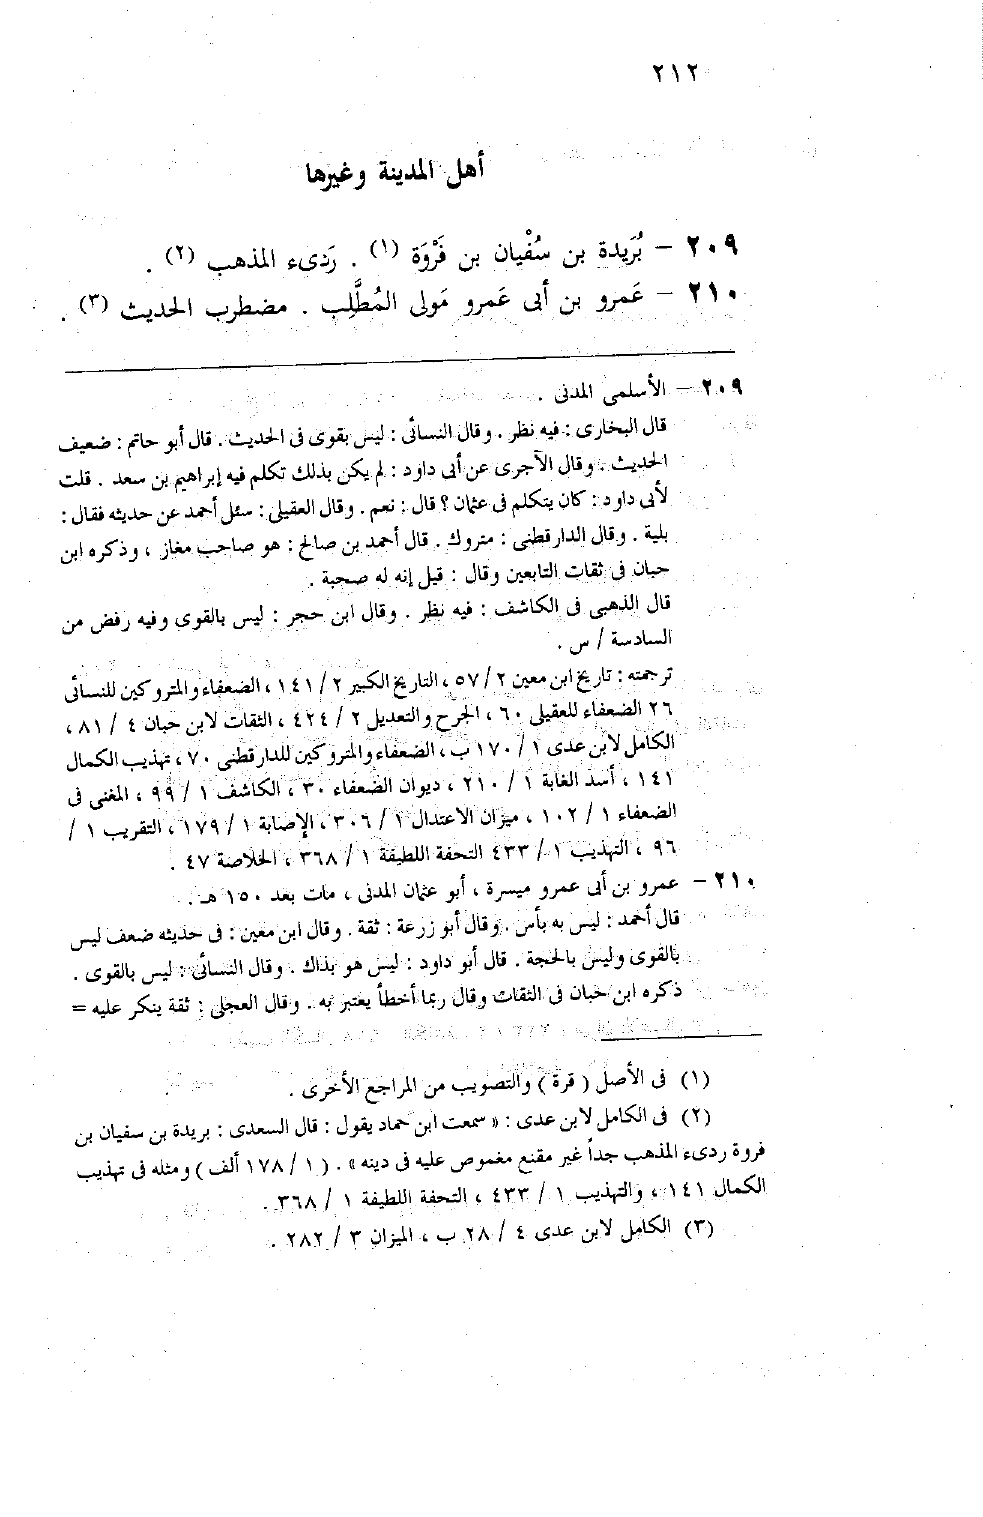 ٢١٢
أهل المدينة وغيرها
٢٠٩ – بُرَيدة بن سُفْيان بن فَرْوَة (١) . رَدىء المذهب (٢) .
٢١٠ – عَمرو بن أبى عَمرو مَولى المُطَّلِب . مضطرب الحديث (٣) .
٢٠٩ – الأسلمى المدنى .
قال البخارى : فيه نظر . وقال النسائى : ليس بقوى فى الحديث . قال أبو حاتم : ضعيف
الحديث . وقال الآجرى عن أبى داود : لم يكن بذلك تكلم فيه إبراهيم بن سعد . قلت
لأبى داود : كان يتكلم فى عثمان ؟ قال : نعم . وقال العقيلى : سئل أحمد عن حديثه فقال :
بلية . وقال الدارقطنى : متروك . قال أحمد بن صالح : هو صاحب مغاز ، وذكره ابن
حبان فى ثقات التابعين وقال : قيل إنه له صحبة .
قال الذهبى فى الكاشف : فيه نظر . وقال ابن حجر : ليس بالقوى وفيه رفض من
السادسة / س .
ترجمته : تاريخ ابن معين ٢ / ٥٧ ، التاريخ الكبير ٢ / ١٤١ ، الضعفاء والمتروكين للنسائى
٢٦ الضعفاء للعقيلى ٦٠ ، الجرح والتعديل ٢ / ٤٢٤ ، الثقات لابن حبان ٤ / ٨١ ،
الكامل لابن عدى ١ / ١٧٠ ب ، الضعفاء والمتروكين للدارقطنى ٧٠ ، تهذيب الكمال
١٤١ ، أسد الغابة ١ / ٢١٠ ، ديوان الضعفاء ٣٠ ، الكاشف ١ / ٩٩ ، المغنى فى
الضعفاء ١ / ١٠٢ ، ميزان الاعتدال ١ / ٣٠٦ ، الإصابة ١ / ١٧٩ ، التقريب ١ /
٩٦ ، التهذيب ١ / ٤٣٣ التحفة اللطيفة ١ / ٣٦٨ ، الخلاصة ٤٧ .
٢١٠ – عمرو بن أبى عمرو ميسرة ، أبو عثمان المدنى ، مات بعد ١٥٠ هـ .
قال أحمد : ليس به بأس . وقال أبو زرعة : ثقة . وقال ابن معين : فى حديثه ضعف ليس
بالقوى وليس بالحجة . قال أبو داود : ليس هو بذاك . وقال النسائى : ليس بالقوى .
ذكره ابن حبان فى الثقات وقال ربما أخطأ يعتبر به . وقال العجلى : ثقة ينكر عليه =
(١) فى الأصل ( قرة ) والتصويب من المراجع الأخرى .
(٢) فى الكامل لابن عدى : « سمعت ابن حماد يقول : قال السعدى : بريدة بن سفيان بن
فروة ردىء المذهب جداً غير مقنع مغموص عليه فى دينه » . ( ١ / ١٧٨ ألف ) ومثله فى تهذيب
الكمال ١٤١ ، والتهذيب ١ / ٤٣٣ ، التحفة اللطيفة ١ / ٣٦٨ .
(٣) الكامل لابن عدى ٤ / ٢٨ ب ، الميزان ٣ / ٢٨٢ .